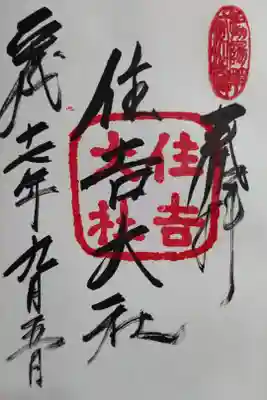 奉拝
住吉大社
住吉
大社
平成十七年九月五日